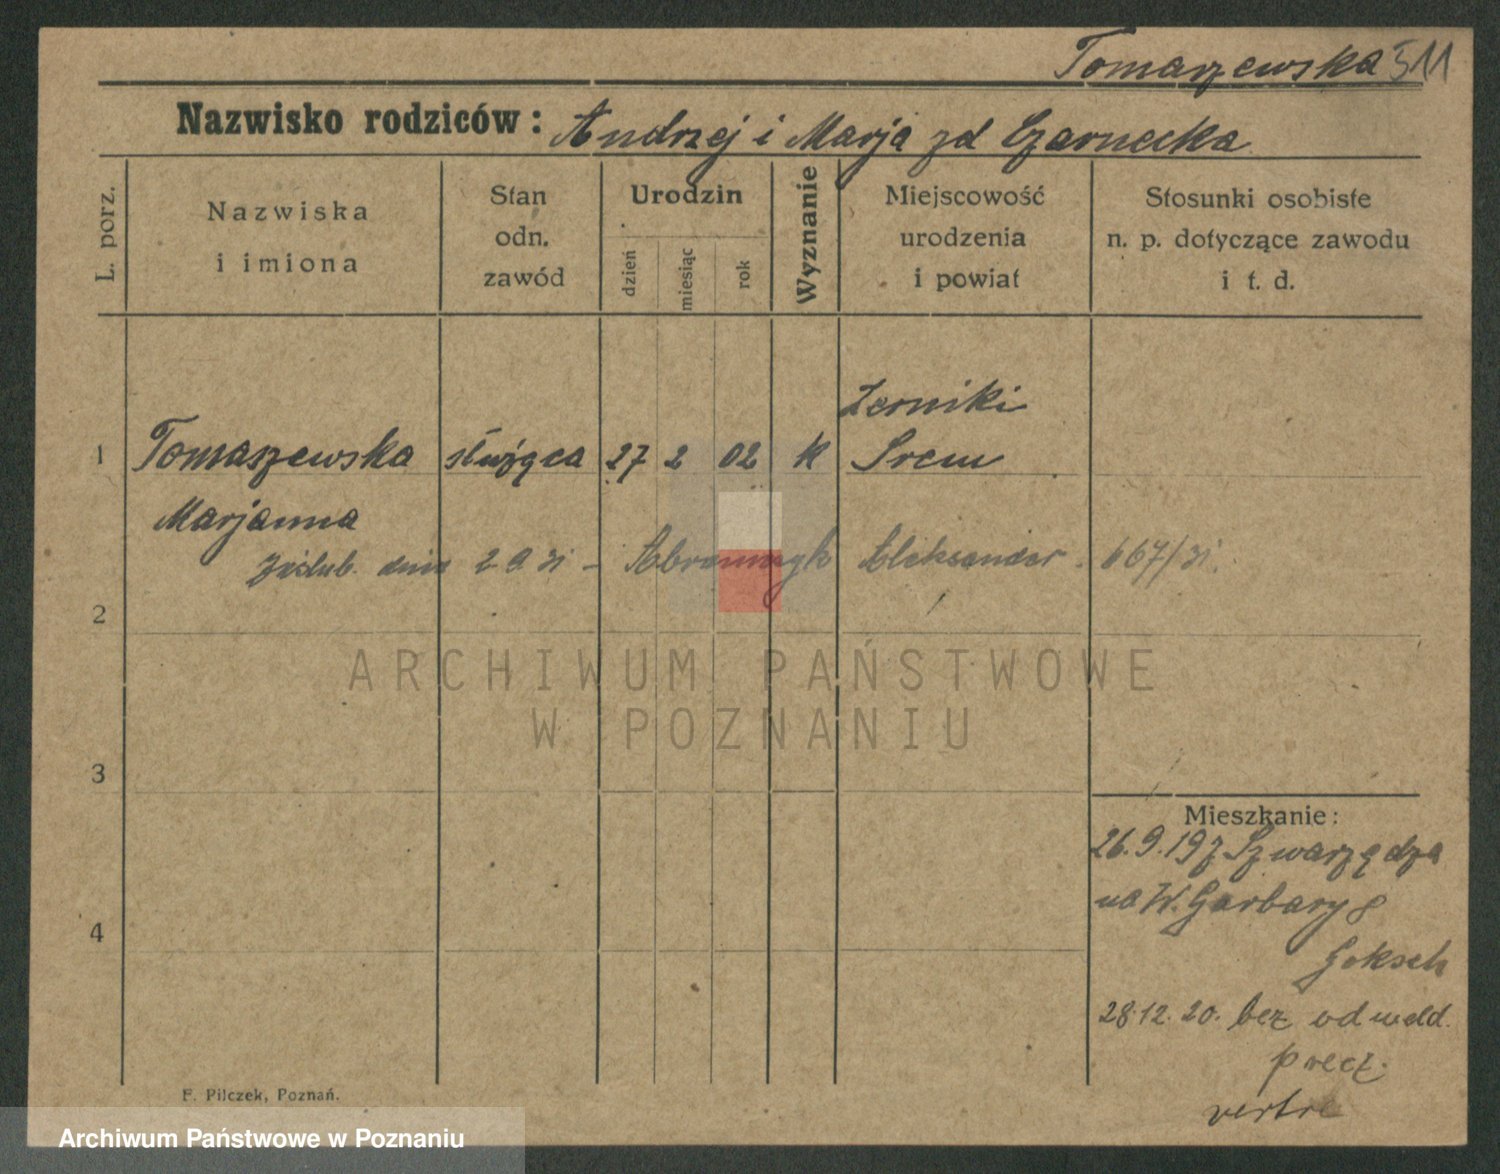 Tomaszewska 511
Nazwisko rodziców: Andrzej i Marja zd Czarnecka
L. porz.
Nazwiska
i imiona
Stan
odn.
zawód
Urodzin
dzień
miesiąc
rok
Wyznanie
Miejscowość
urodzenia
i powiat
Stosunki osobiste
n. p. dotyczące zawodu
i t. d.
Zerniki
1 Tomaszewska służąca 27 2 02 k Srem
Marjanna
zaślub. dnia 2 9 31 - Aleksander. 667/31.
2
ARCHIWUM PAŃSTWOWE
W POZNANIU
3
Mieszkanie:
26.9.19 z Szwarzędza
na W. Garbary 8
4
Goksch
28.12.20. bez odmeld.
F. Pilczek, Poznań.
Archiwum Państwowe w Poznaniu